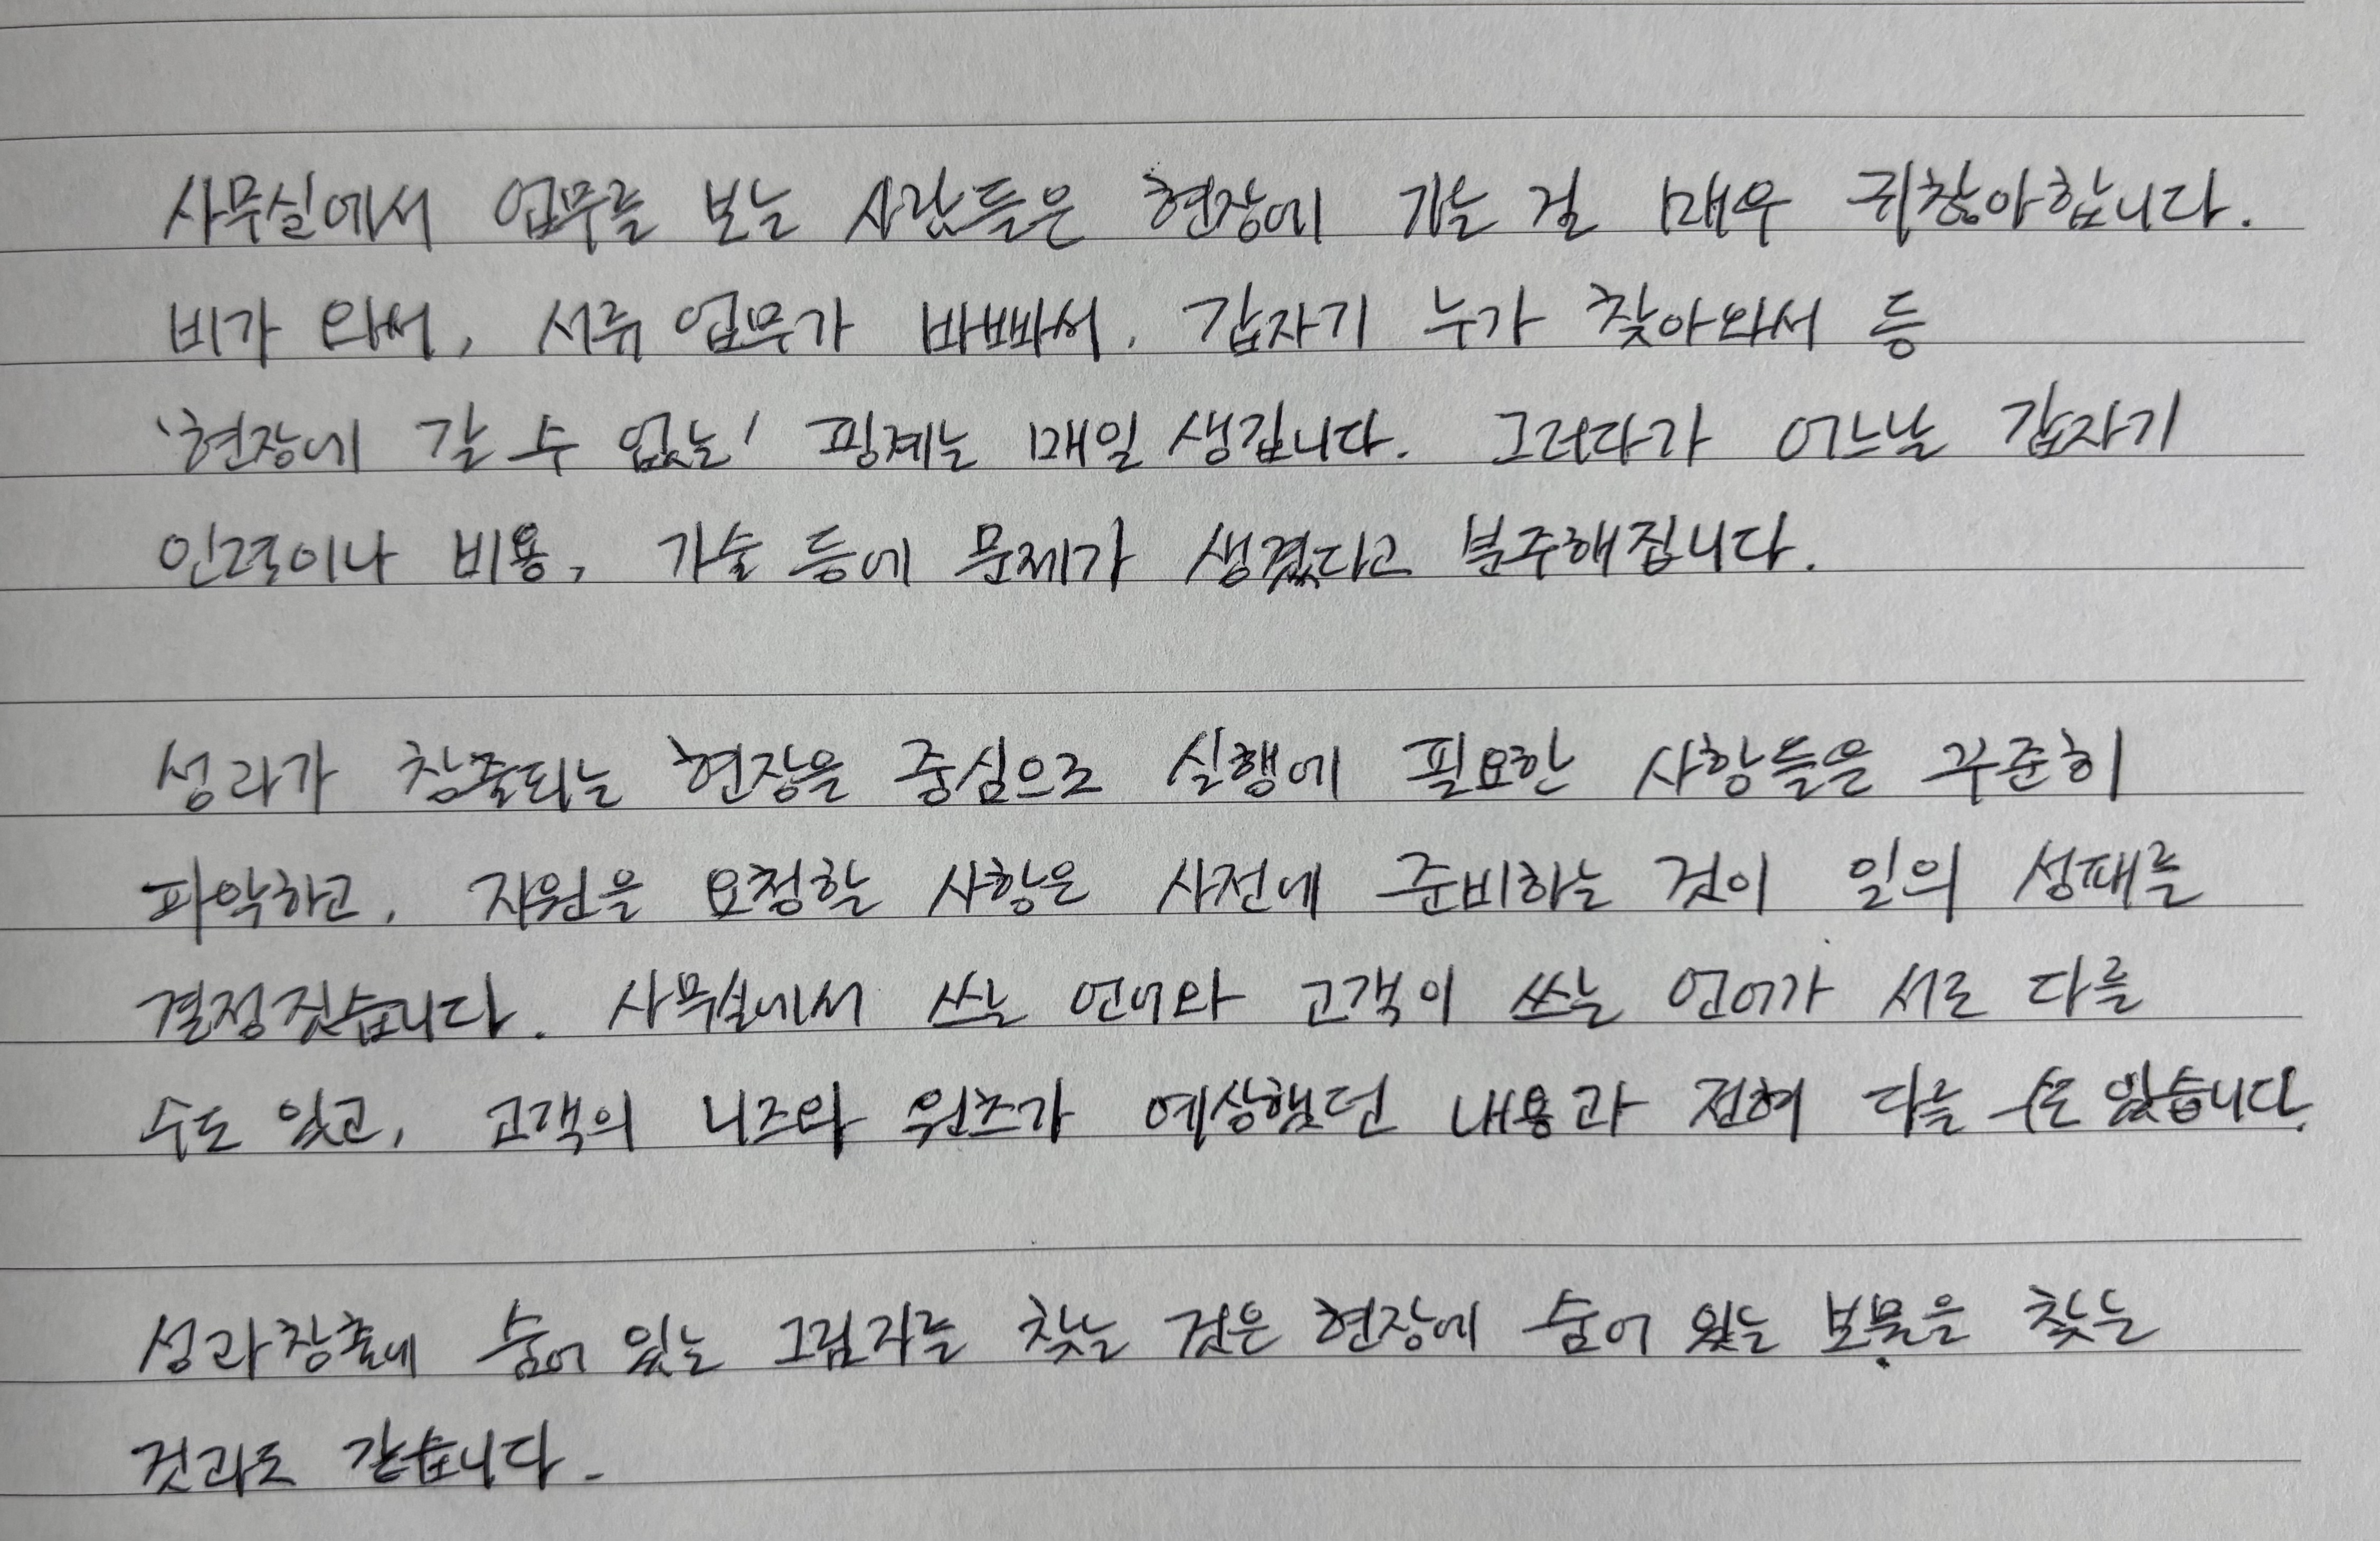 사무실에서 업무를 보는 사람들은 현장에 가는 걸 매우 귀찮아합니다.
비가 와서, 서류 업무가 바빠서, 갑자기 누가 찾아와서 등
'현장에 갈 수 없는' 핑계는 매일 생깁니다. 그러다가 어느날 갑자기
인력이나 비용, 기술 등에 문제가 생겼다고 분주해집니다.
성과가 창출되는 현장을 중심으로 실행에 필요한 사항들을 꾸준히
파악하고, 자원을 요청할 사항은 사전에 준비하는 것이 일의 성패를
결정짓습니다. 사무실에서 쓰는 언어와 고객이 쓰는 언어가 서로 다를
수도 있고, 고객의 니즈와 원츠가 예상했던 내용과 전혀 다를 수도 있습니다.
성과창출에 숨어 있는 그림자를 찾는 것은 현장에 숨어 있는 보물을 찾는
것과도 같습니다.